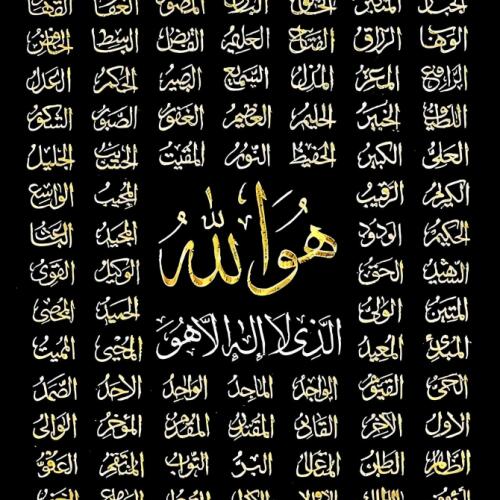 الجبار المتكبر الخالق المصور الغفار القهار
الوهاب الرزاق الفتاح العليم القابض الباسط الخافض
الرافع المعز المذل السميع البصير الحكم العدل
اللطيف الخبير الحليم العظيم الغفور الصبور الشكور
العلي الكبير الحفيظ النور المقيت الحسيب الجليل
الكريم الرقيب المجيب الواسع
الحكيم الودود المجيد الباعث
هُوَ اللّٰهُ
الشهيد الحق الوكيل القوي
المتين الولي الحميد المحصي
الَّذِي لَا إِلٰهَ إِلَّا هُوَ
المبدئ المعيد المحيي المميت
الحي القيوم الواجد الماجد الواحد الاحد الصمد
الاول الاخر القادر المقتدر المقدم المؤخر الوالي
الظاهر الباطن المتعالي البر التواب المنتقم العفو